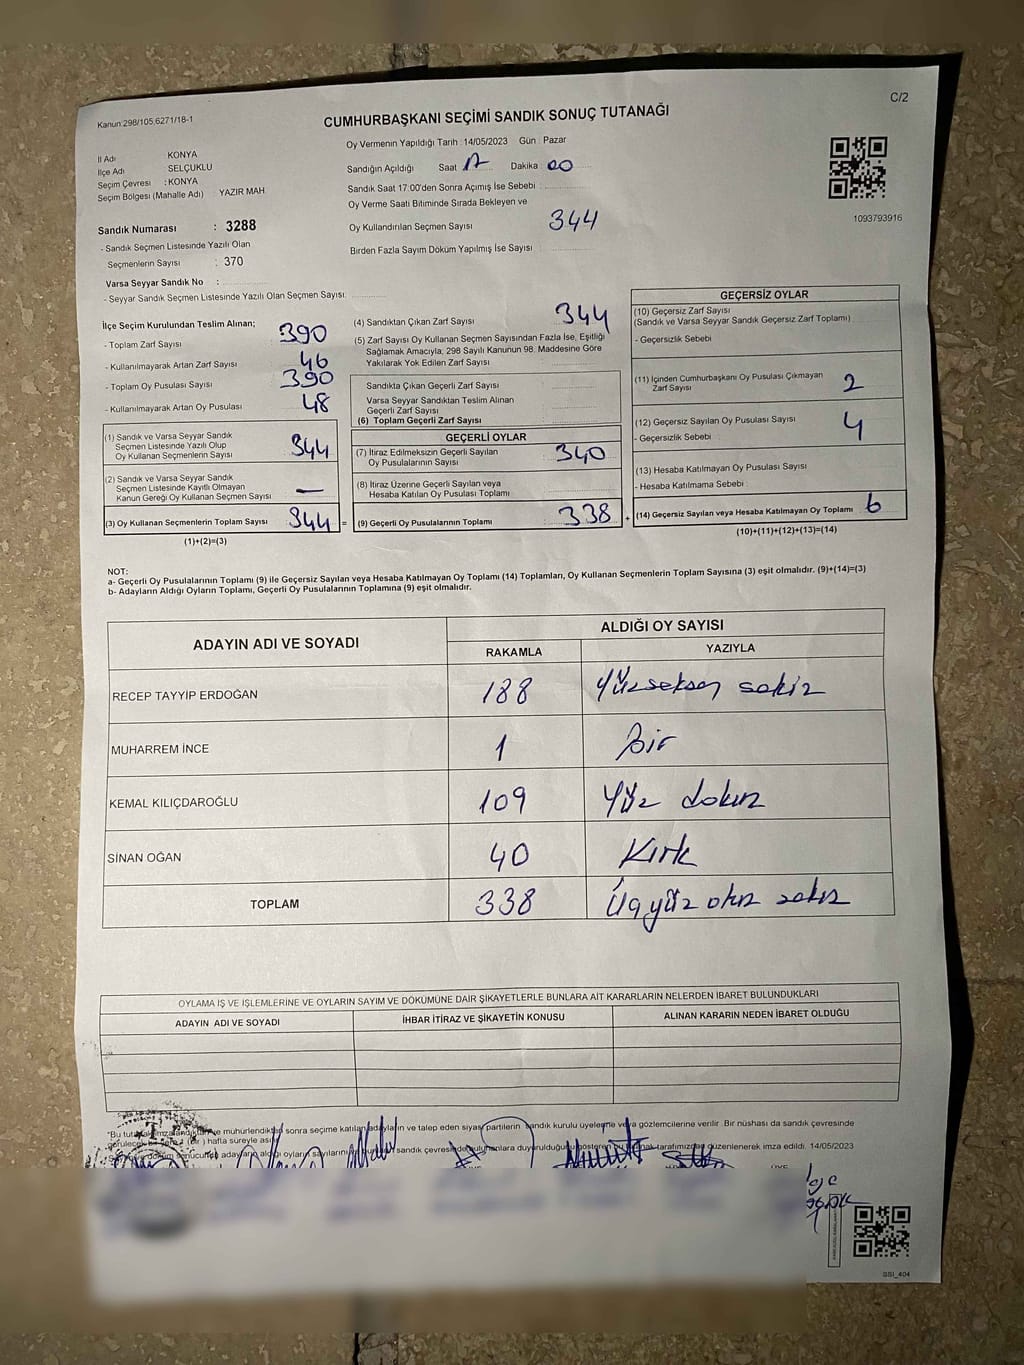 C/2
Kanun:298/105,6271/18-1
CUMHURBAŞKANI SEÇİMİ SANDIK SONUÇ TUTANAĞI
Oy Vermenin Yapıldığı Tarih :14/05/2023 Gün : Pazar
İl Adı KONYA
İlçe Adı SELÇUKLU
Seçim Çevresi : KONYA
Seçim Bölgesi (Mahalle Adı) : YAZIR MAH
Sandığın Açıldığı Saat : 17 Dakika : 00
Sandık Saat 17:00'den Sonra Açımış İse Sebebi :
Oy Verme Saati Bitiminde Sırada Bekleyen ve
Oy Kullandırılan Seçmen Sayısı : 344
Birden Fazla Sayım Döküm Yapılmış İse Sayısı :
1093793916
Sandık Numarası : 3288
- Sandık Seçmen Listesinde Yazılı Olan
Seçmenlerin Sayısı : 370
Varsa Seyyar Sandık No :
- Seyyar Sandık Seçmen Listesinde Yazılı Olan Seçmen Sayısı:
İlçe Seçim Kurulundan Teslim Alınan;
- Toplam Zarf Sayısı : 390
- Kullanılmayarak Artan Zarf Sayısı : 46
- Toplam Oy Pusulası Sayısı : 390
- Kullanılmayarak Artan Oy Pusulası : 48
(1) Sandık ve Varsa Seyyar Sandık
Seçmen Listesinde Yazılı Olup
Oy Kullanan Seçmenlerin Sayısı : 344
(2) Sandık ve Varsa Seyyar Sandık
Seçmen Listesinde Kayıtlı Olmayan
Kanun Gereği Oy Kullanan Seçmen Sayısı : —
(3) Oy Kullanan Seçmenlerin Toplam Sayısı : 344 =
(1)+(2)=(3)
(4) Sandıktan Çıkan Zarf Sayısı : 344
(5) Zarf Sayısı Oy Kullanan Seçmen Sayısından Fazla İse, Eşitliği
Sağlamak Amacıyla; 298 Sayılı Kanunun 98. Maddesine Göre
Yakılarak Yok Edilen Zarf Sayısı :
Sandıkta Çıkan Geçerli Zarf Sayısı :
Varsa Seyyar Sandıktan Teslim Alınan
Geçerli Zarf Sayısı :
(6) Toplam Geçerli Zarf Sayısı :
GEÇERLİ OYLAR
(7) İtiraz Edilmeksizin Geçerli Sayılan
Oy Pusulalarının Sayısı : 340
(8) İtiraz Üzerine Geçerli Sayılan veya
Hesaba Katılan Oy Pusulası Toplamı :
(9) Geçerli Oy Pusulalarının Toplamı : 338 +
GEÇERSİZ OYLAR
(10) Geçersiz Zarf Sayısı :
(Sandık ve Varsa Seyyar Sandık Geçersiz Zarf Toplamı)
- Geçersizlik Sebebi :
(11) İçinden Cumhurbaşkanı Oy Pusulası Çıkmayan
Zarf Sayısı : 2
(12) Geçersiz Sayılan Oy Pusulası Sayısı : 4
- Geçersizlik Sebebi :
(13) Hesaba Katılmayan Oy Pusulası Sayısı :
- Hesaba Katılmama Sebebi :
(14) Geçersiz Sayılan veya Hesaba Katılmayan Oy Toplamı : 6
(10)+(11)+(12)+(13)=(14)
NOT:
a- Geçerli Oy Pusulalarının Toplamı (9) ile Geçersiz Sayılan veya Hesaba Katılmayan Oy Toplamı (14) Toplamları, Oy Kullanan Seçmenlerin Toplam Sayısına (3) eşit olmalıdır. (9)+(14)=(3)
b- Adayların Aldığı Oyların Toplamı, Geçerli Oy Pusulalarının Toplamına (9) eşit olmalıdır.
ADAYIN ADI VE SOYADI ALDIĞI OY SAYISI
RAKAMLA YAZIYLA
RECEP TAYYİP ERDOĞAN 188 Yüzseksen sekiz
MUHARREM İNCE 1 Bir
KEMAL KILIÇDAROĞLU 109 Yüz dokuz
SİNAN OĞAN 40 Kırk
TOPLAM 338 Üçyüz otuz sekiz
OYLAMA İŞ VE İŞLEMLERİNE VE OYLARIN SAYIM VE DÖKÜMÜNE DAİR ŞİKAYETLERLE BUNLARA AİT KARARLARIN NELERDEN İBARET BULUNDUKLARI
ADAYIN ADI VE SOYADI İHBAR İTİRAZ VE ŞİKAYETİN KONUSU ALINAN KARARIN NEDEN İBARET OLDUĞU
ve mühürlendikten sonra seçime katılan adayların ve talep eden siyasi partilerin sandık kurulu üyelerine veya gözlemcilerine verilir. Bir nüshası da sandık çevresinde
hafta süreyle asılır
döküm sonucunda adayların aldığı oyların sayılarını sandık çevresinde tarafımızdan düzenlenerek imza edildi. 14/05/2023
SSİ_404